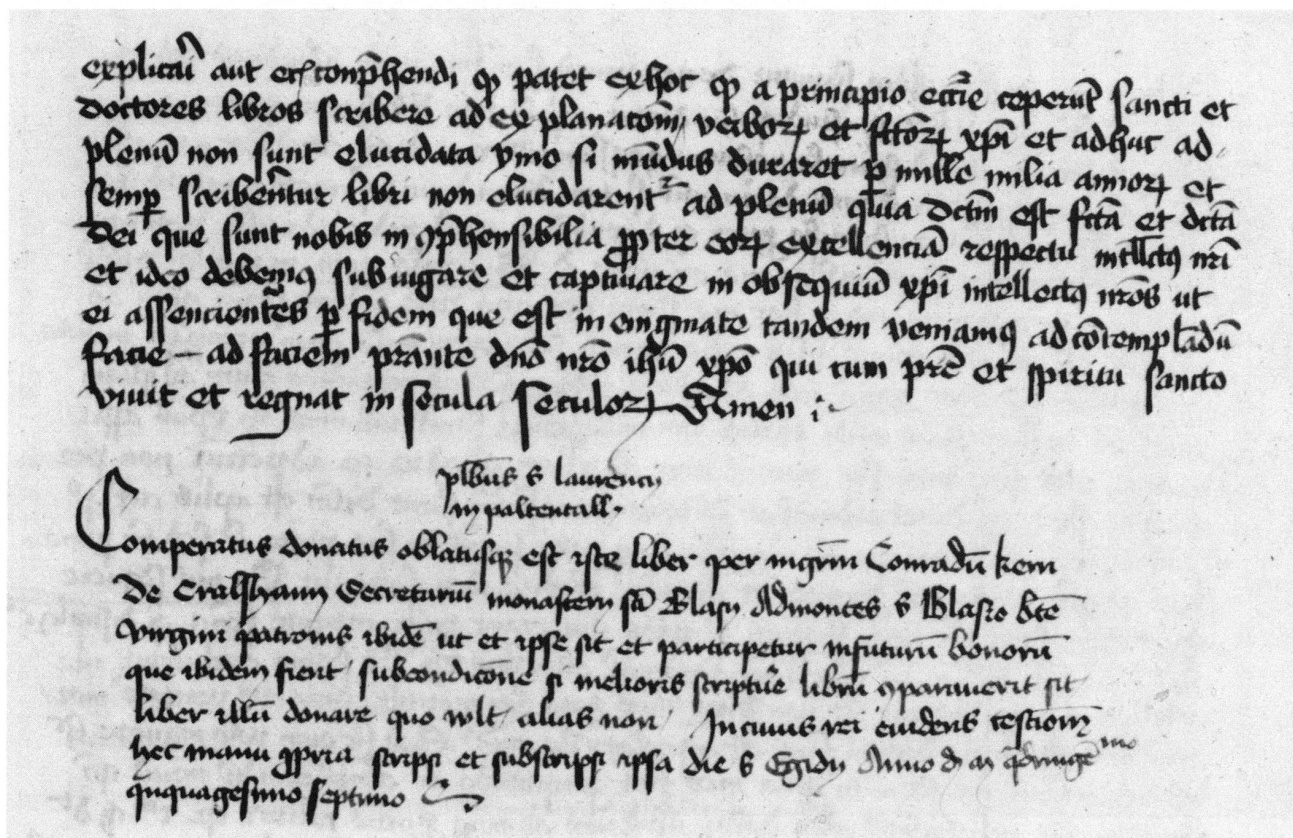 explicari aut etiam conp̄hendi qͦ patet ex hoc qͦ a principio eccl̄ie ceperūt sancti et
doctores libros scribere ad explanacōm verborꝝ et fctōrꝝ xpī et adhuc ad
plenū non sunt elucidata ymo si mūdus duraret ꝑ mille milia annorꝝ et
semꝑ scriberētur libri non elucidarent᷑ ad plenū quia dctm̄ est fctā et dctā
dei que sunt nobis in ꝯp̄hensibilia ꝓpter eorꝝ excellenciā respectu intllctꝰ nr̄i
et ideo debemꝰ subiugare et captiuare in obsequiū xpī intellectꝰ nr̄os ut
ei assencientes ꝑ fidem que est in enigmate tandem veniamꝰ ad cōtemplādū
facie – ad faciem p̄stante dn̄o nr̄o ihū xpō qui cum pr̄e et spiritu sancto
viuit et regnat in secula seculorꝝ Amen
plb̄nus s laurencij
in paltentall.
Comperatus donatus oblatusqꝫ est iste liber per mgrm̄ Conradū kern
De Cralshaim Secretariū monasterij sc̄i Blasij Admontēs s Blasio bt̄e
virgini patronis ibidē ut et ipse sit et participetur infuturū bonorū
que ibidem fient subcondicōne si melioris scriptur̄e librū ꝯparauerit sit
liber illū donare quo wlt alias non In cuius rei euidens testiom̄
hec manu ꝓpria scripsi et subscripsi ipsa die s Egidij Anno d̄ m̄ qͣdringēmo
qͥnquagesimo septimo